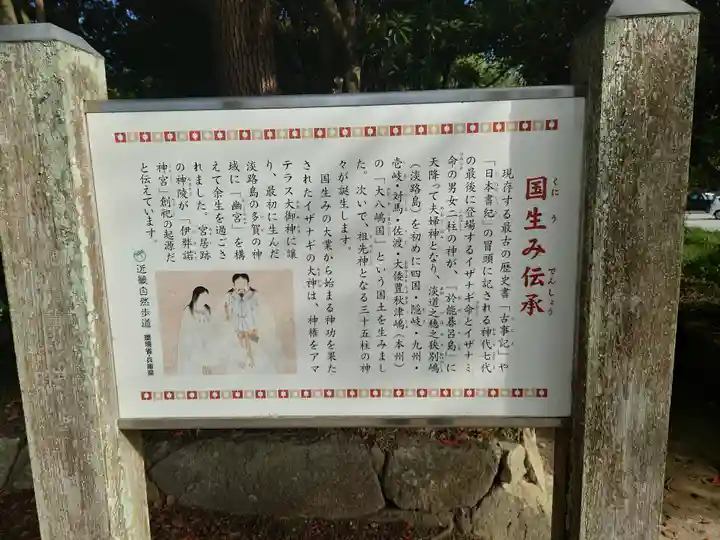 国生み伝承
くにう
でんしょう
現存する最古の歴史書「古事記」や
「日本書紀」の冒頭に記される神代七代
の最後に登場するイザナギ命とイザナミ
命の男女二柱の神が、「於能碁呂島」に
天降って夫婦神となり、淡道之穂之狭別嶋
（淡路島）を初めに四国・隠岐・九州・
壱岐・対馬・佐渡・大倭豊秋津嶋（本州）
の「大八嶋国」という国土を生みまし
た。次いで、祖先神となる三十五柱の神
々が誕生します。
国生みの大業から始まる神功を果た
されたイザナギの大神は、神権をアマ
テラス大御神に譲
り、最初に生んだ
淡路島の多賀の神
域に「幽宮」を構
えて余生を過ごさ
れました。宮居跡
の神陵が、「伊弉諾
神宮」創祀の起源だ
と伝えています。
近畿自然歩道 環境省・兵庫県